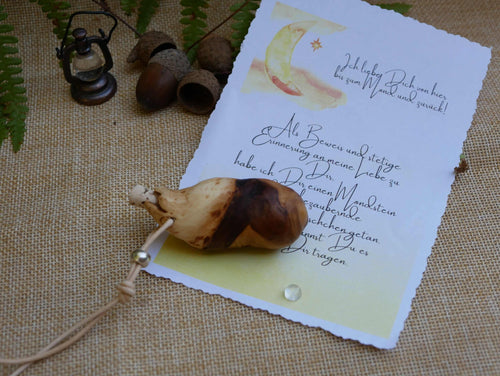 Ich liebe Dich von hier
bis zum Mond und zurück!
Als Beweis und stetige
Erinnerung an meine Liebe zu
Dir,
habe ich Dir einen Mondstein
zaubernde
schchen getan
nnst Du es
Dir tragen.